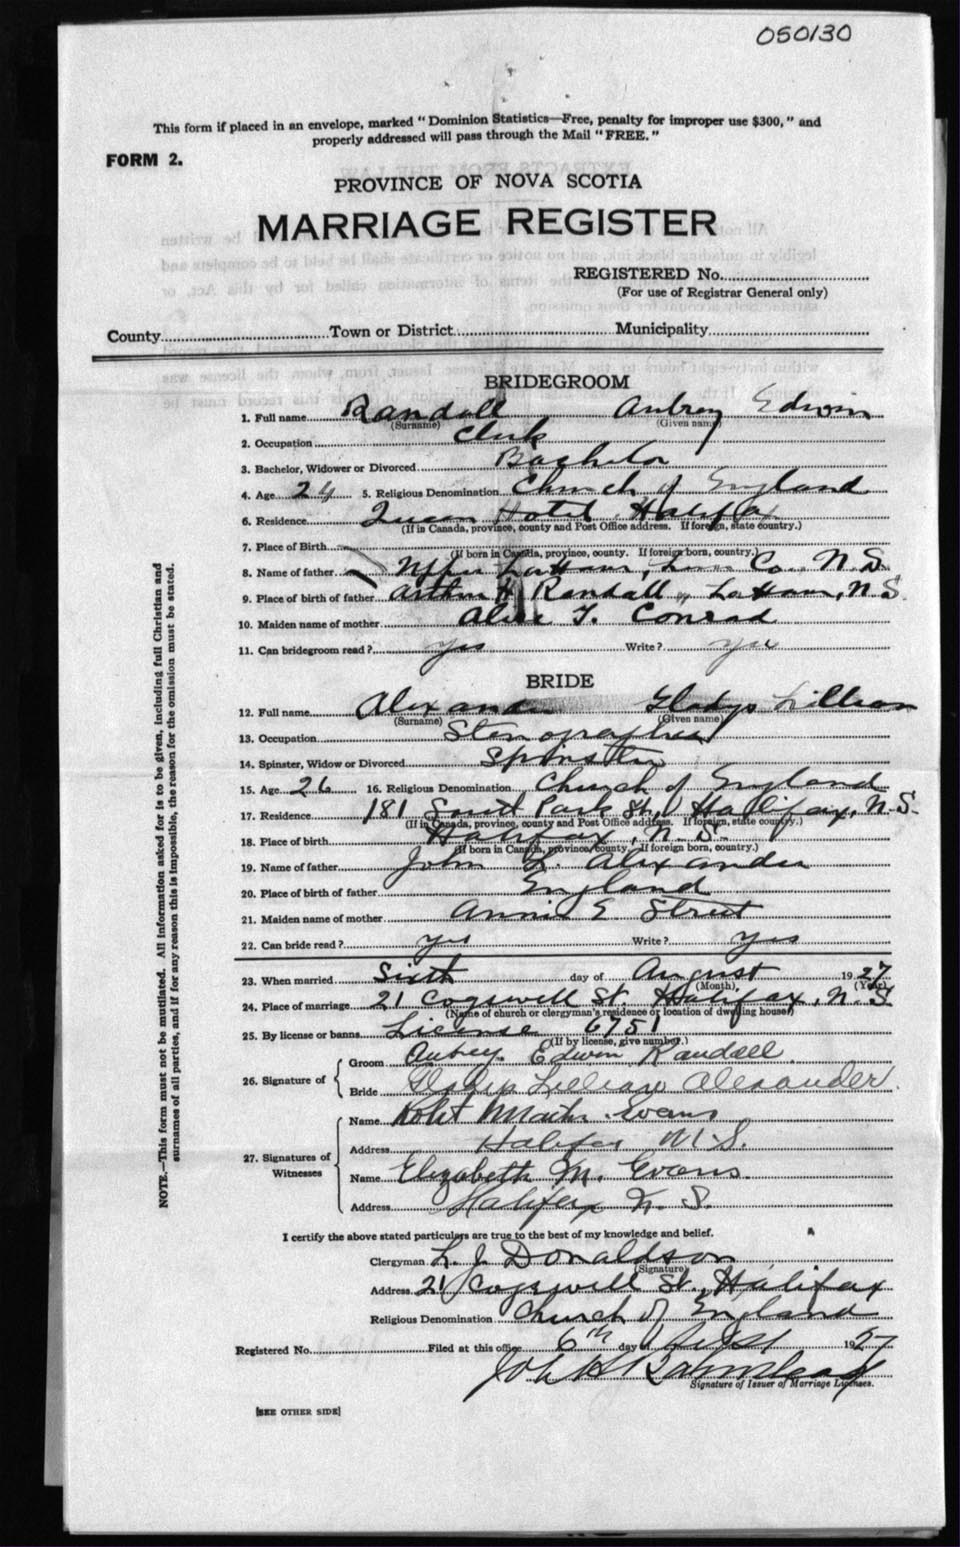 050130
This form if placed in an envelope, marked "Dominion Statistics—Free, penalty for improper use $300," and
properly addressed will pass through the Mail "FREE."
FORM 2.
PROVINCE OF NOVA SCOTIA
MARRIAGE REGISTER
REGISTERED No.
(For use of Registrar General only)
County Town or District Municipality
BRIDEGROOM
1. Full name Randall Aubrey Edwin
(Surname) (Given name)
2. Occupation Clerk
3. Bachelor, Widower or Divorced Bachelor
4. Age 24 5. Religious Denomination Church of England
6. Residence Queen Hotel Halifax
(If in Canada, province, county and Post Office address. If foreign, state country.)
7. Place of Birth
(If born in Canada, province, county. If foreign born, country.)
8. Name of father Upper LaHave, Co. N.S.
9. Place of birth of father Arthur H. Randall LaHave, N.S.
10. Maiden name of mother Alice T. Conrad
11. Can bridegroom read? yes Write? yes
BRIDE
12. Full name Alexander Gladys Lillian
(Surname) (Given name)
13. Occupation Stenographer
14. Spinster, Widow or Divorced Spinster
15. Age 26 16. Religious Denomination Church of England
17. Residence 181 South Park St., Halifax, N.S.
(If in Canada, province, county and Post Office address. If foreign, state country.)
18. Place of birth Halifax, N.S.
(If born in Canada, province, county. If foreign born, country.)
19. Name of father John L. Alexander
20. Place of birth of father England
21. Maiden name of mother Annie E Street
22. Can bride read? yes Write? yes
23. When married Sixth day of August 1927
(Month), (Year)
24. Place of marriage 21 Cogswell St. Halifax, N.S.
(Name of church or clergyman's residence or location of dwelling house)
25. By license or banns License 6751
(If by license, give number.)
26. Signature of
Groom Aubrey Edwin Randall
Bride Gladys Lillian Alexander
27. Signatures of Witnesses
Name Robt Evans
Address Halifax N.S.
Name Elizabeth M. Evans
Address Halifax N.S.
I certify the above stated particulars are true to the best of my knowledge and belief.
Clergyman L. J. Donaldson
(Signature)
Address 21 Cogswell St., Halifax
Religious Denomination Church of England
Registered No. Filed at this office 6th day of 1927
Signature of Issuer of Marriage Licenses.
[SEE OTHER SIDE]
NOTE.—This form must not be mutilated. All information asked for is to be given, including full Christian and
surnames of all parties, and if for any reason this is impossible, the reason for the omission must be stated.